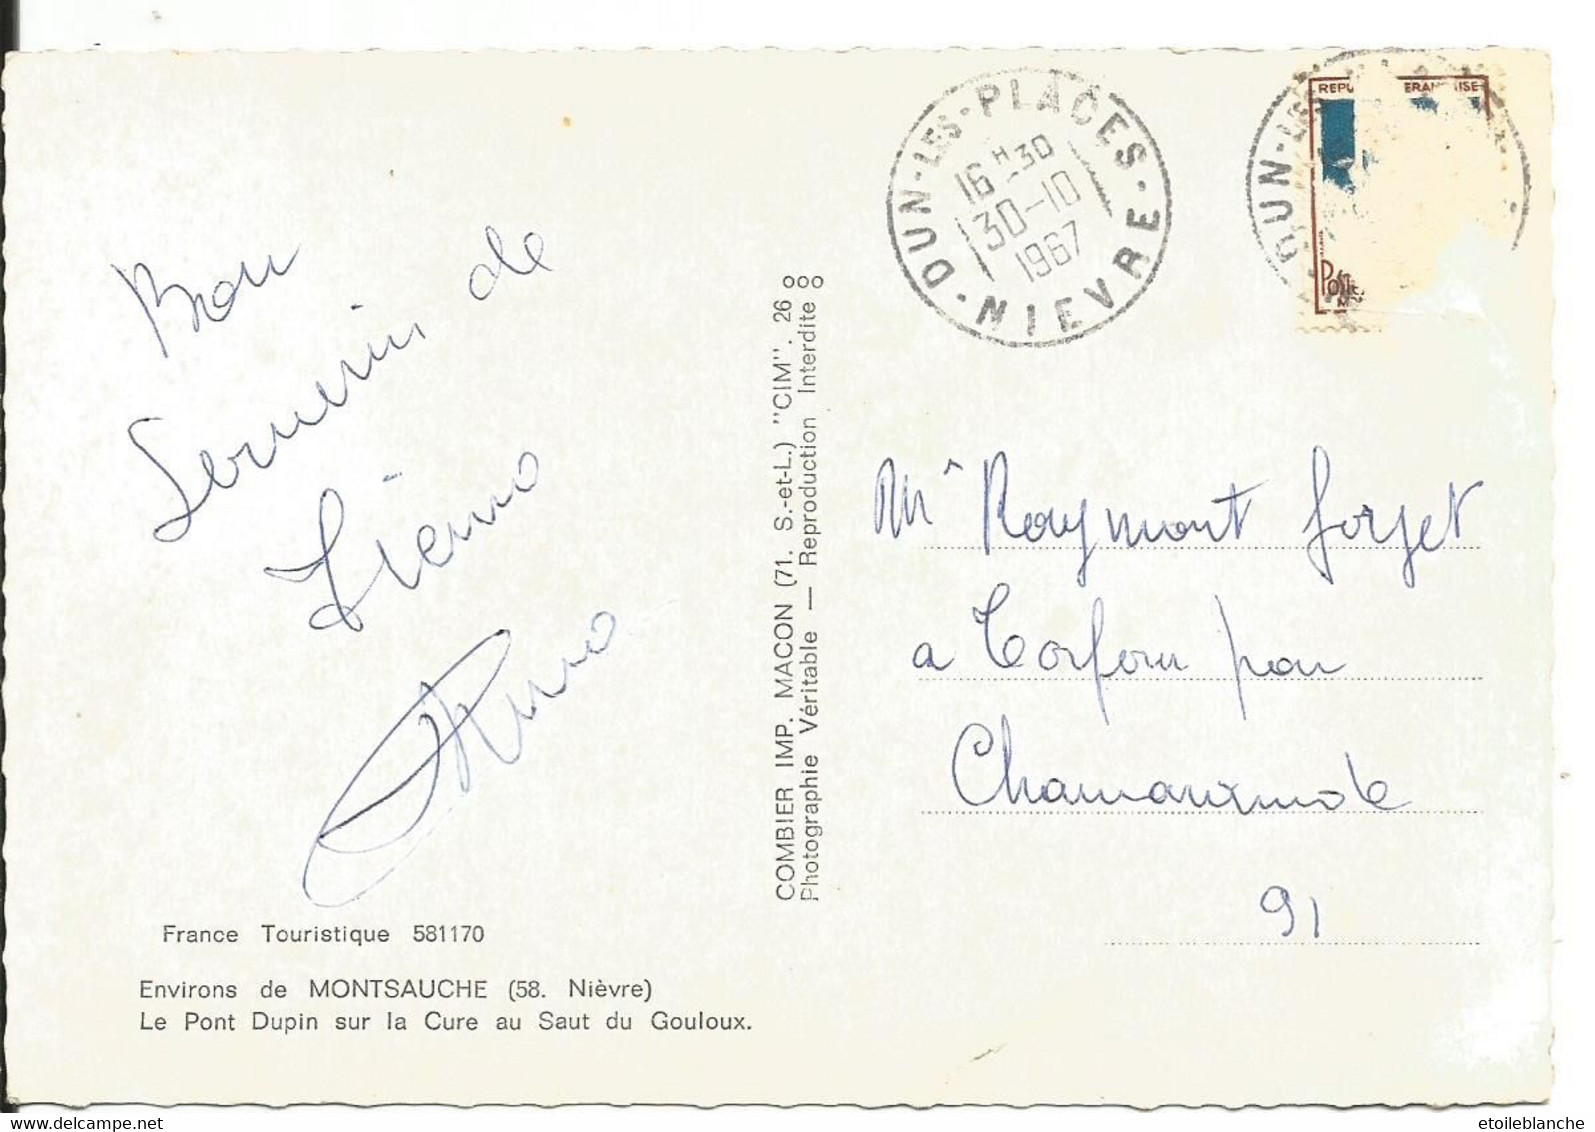 DUN-LES-PLACES
16H30
30-10
1967
NIEVRE
REPU ERANÇAISE
DUN-LES
Postes
Bon
Servenir de
Pierre
Mr Raymont forget
a Torfou par
Chamaranmde
91
COMBIER IMP. MACON (71. S.-et-L.) "CIM". 26
Photographie Véritable — Reproduction Interdite
France Touristique 581170
Environs de MONTSAUCHE (58. Nièvre)
Le Pont Dupin sur la Cure au Saut du Gouloux.
etoileblanche